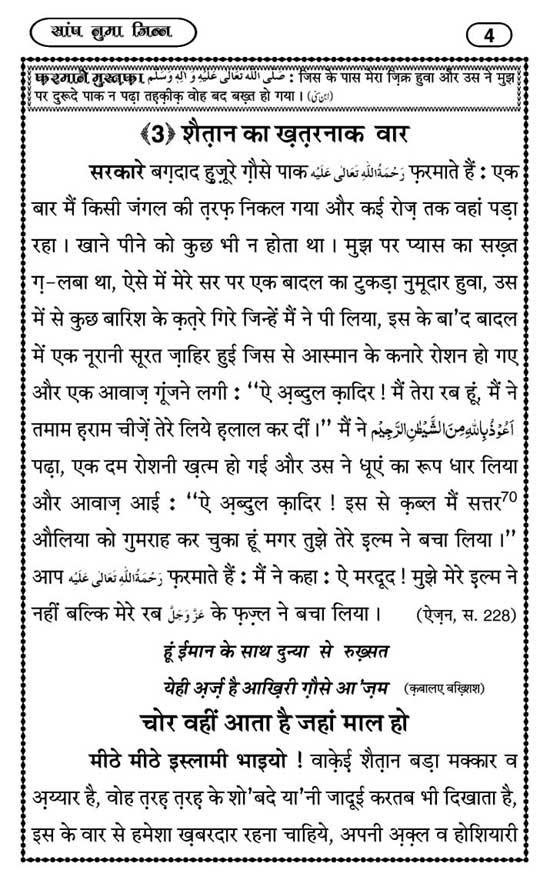 सांप नुमा जिन्न 4
फ़रमाने मुस्तफ़ा صَلَّى اللهُ تَعَالٰى عَلَيْهِ وَاٰلِهٖ وَسَلَّم : जिस के पास मेरा ज़िक्र हुवा और उस ने मुझ
पर दुरूदे पाक न पढ़ा तह़क़ीक़ वोह बद बख़्त हो गया ।
﴾3﴿ शैत़ान का ख़त़रनाक वार
सरकारे बग़दाद हुज़ूरे ग़ौसे पाक رَحْمَةُ اللهِ تَعَالٰى عَلَيْه फ़रमाते हैं : एक
बार मैं किसी जंगल की त़रफ़ निकल गया और कई रोज़ तक वहां पड़ा
रहा । खाने पीने को कुछ भी न होता था । मुझ पर प्यास का सख़्त
ग़-लबा था, ऐसे में मेरे सर पर एक बादल का टुकड़ा नुमूदार हुवा, उस
में से कुछ बारिश के क़त़रे गिरे जिन्हें मैं ने पी लिया, इस के बा'द बादल
में एक नूरानी सूरत ज़ाहिर हुई जिस से आस्मान के कनारे रोशन हो गए
और एक आवाज़ गूंजने लगी : ‘‘ऐ अ़ब्दुल क़ादिर ! मैं तेरा रब हूं, मैं ने
तमाम ह़राम चीज़ें तेरे लिये ह़लाल कर दीं ।’’ मैं ने اَعُوْذُ بِاللّٰهِ مِنَ الشَّيْطٰنِ الرَّجِيْمِ
पढ़ा, एक दम रोशनी ख़त्म हो गई और उस ने धूएं का रूप धार लिया
और आवाज़ आई : ‘‘ऐ अ़ब्दुल क़ादिर ! इस से क़ब्ल मैं सत्तर70
औलिया को गुमराह कर चुका हूं मगर तुझे तेरे इ़ल्म ने बचा लिया ।’’
आप رَحْمَةُ اللهِ تَعَالٰى عَلَيْه फ़रमाते हैं : मैं ने कहा : ऐ मरदूद ! मुझे मेरे इ़ल्म ने
नहीं बल्कि मेरे रब عَزَّوَجَلَّ के फ़ज़्ल ने बचा लिया । (ऐज़न, स. 228)
हूं ईमान के साथ दुन्या से रुख़्सत
येही अ़र्ज़ है आख़िरी ग़ौसे आ'ज़म (क़बालए बख़्शिश)
चोर वहीं आता है जहां माल हो
मीठे मीठे इस्लामी भाइयो ! वाक़ेई शैत़ान बड़ा मक्कार व
अ़य्यार है, वोह त़रह़ त़रह़ के शो'बदे या'नी जादूई करतब भी दिखाता है,
इस के वार से हमेशा ख़बरदार रहना चाहिये, अपनी अ़क़्ल व होशियारी